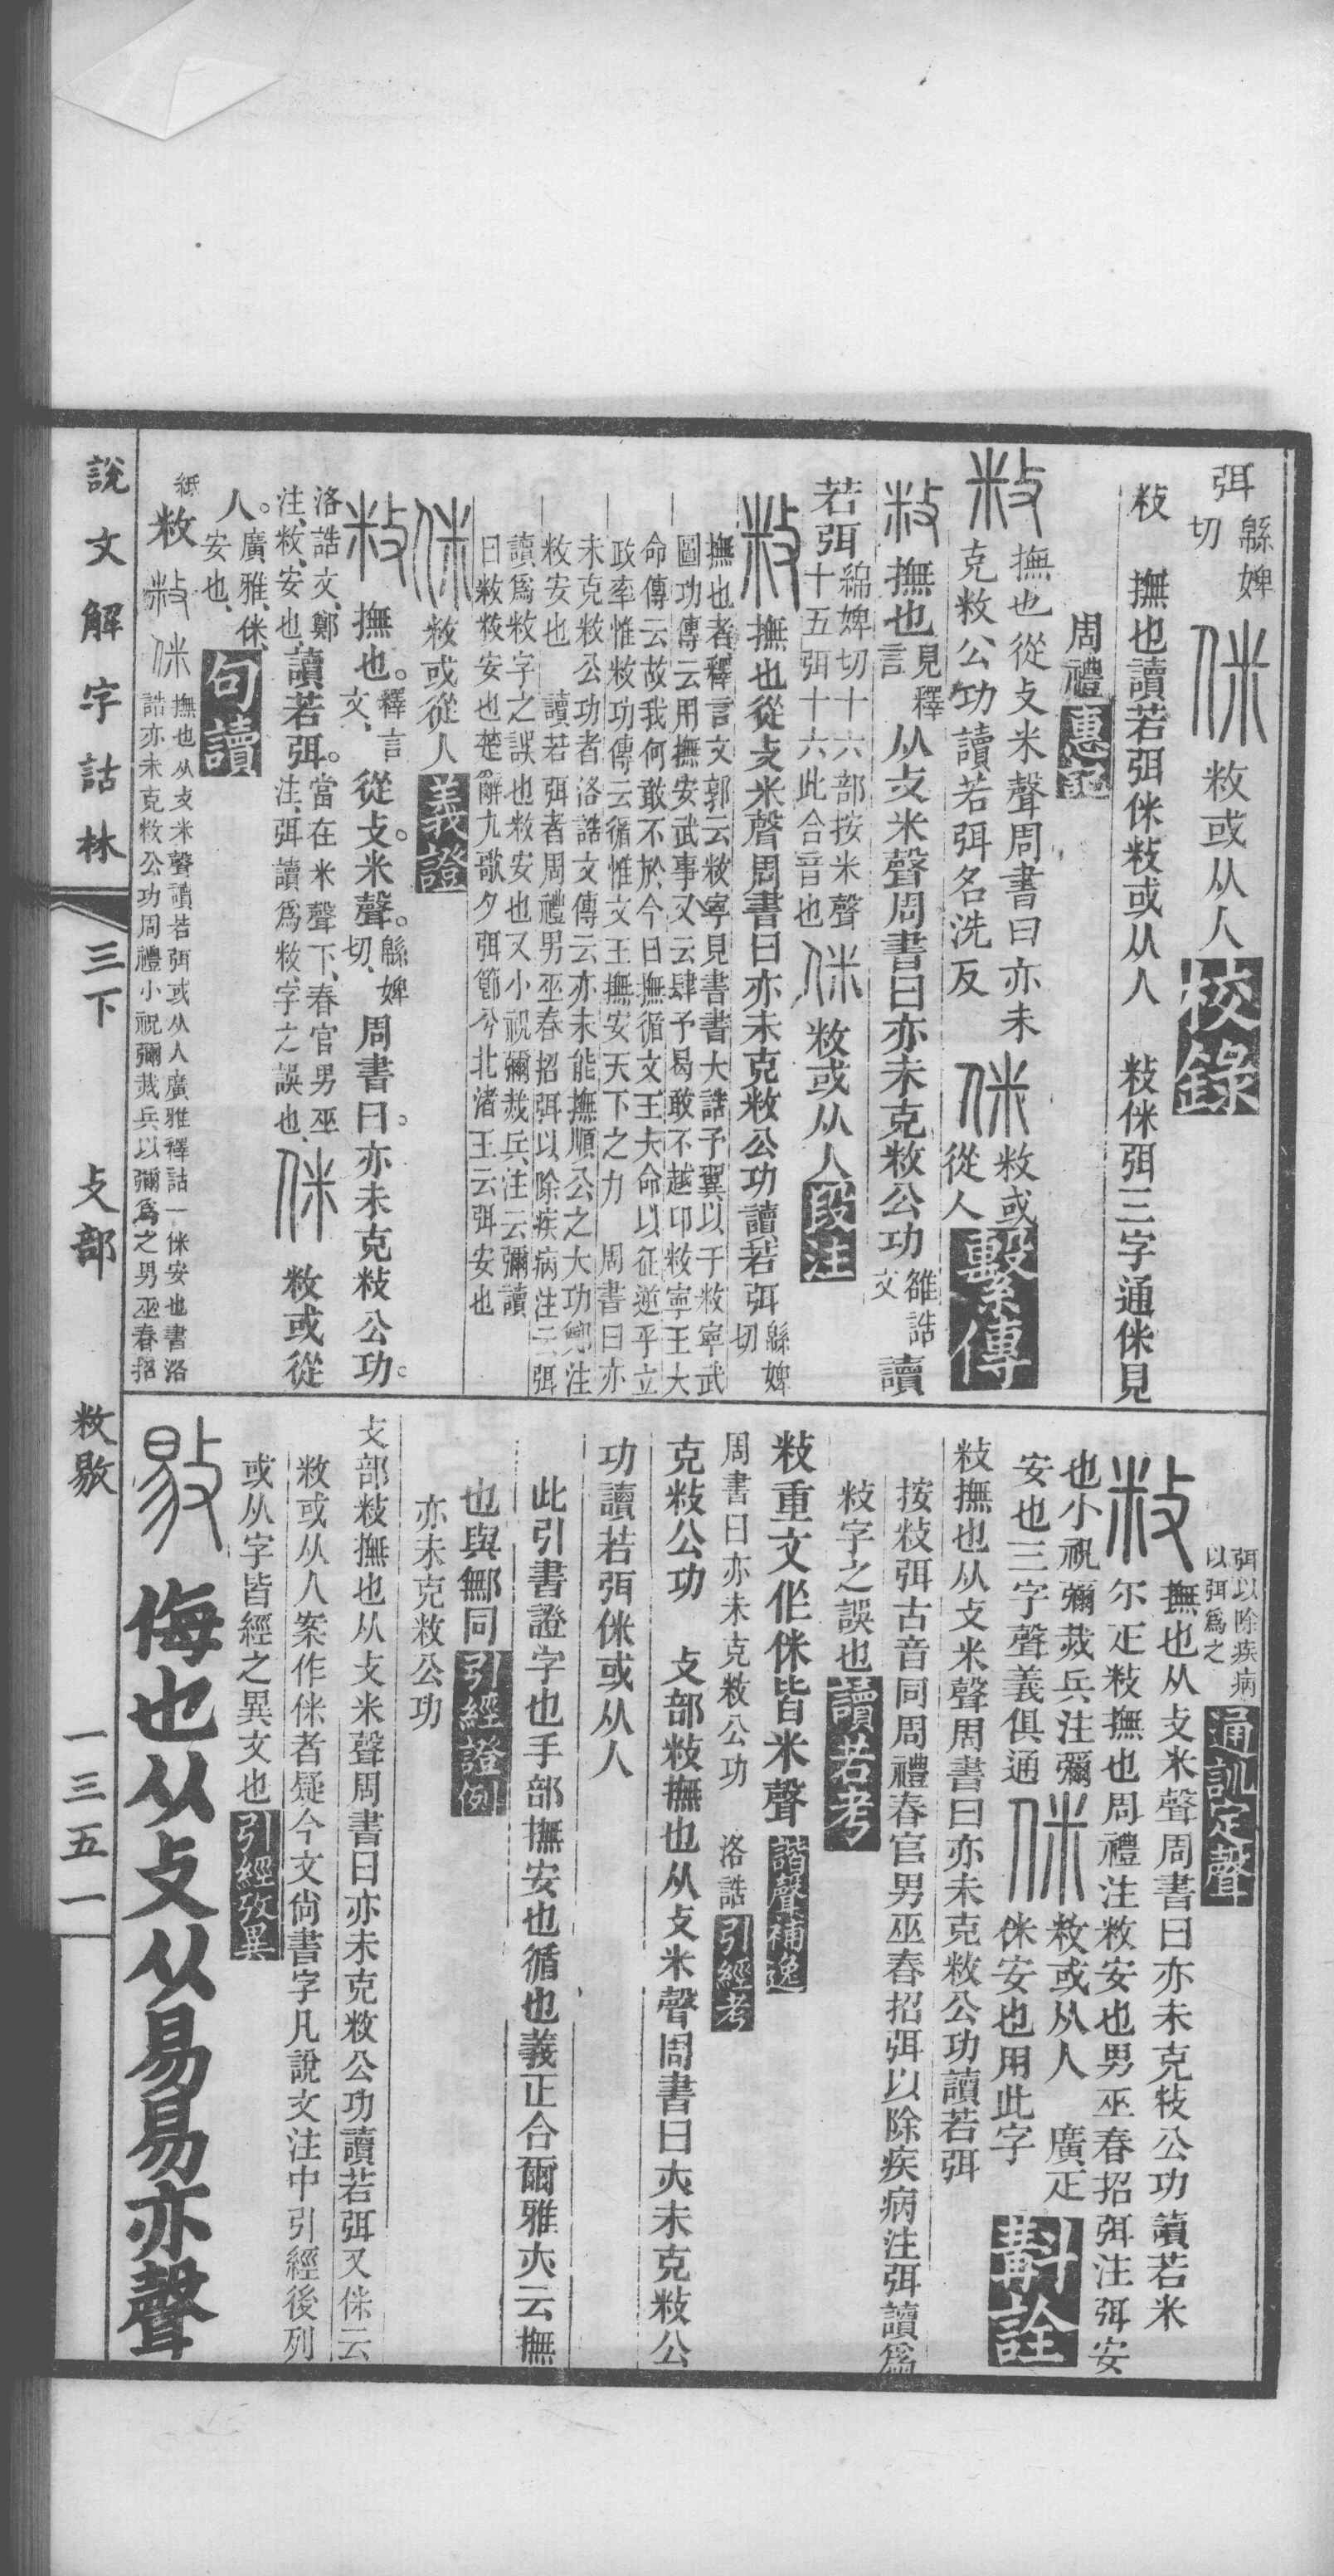 弭緜婢切 侎 敉或从人 校錄
敉 撫也讀若弭侎敉或从人 敉侎弭三字通侎見
周禮 惠⿺
敉 撫也從攴米聲周書曰亦未
克敉公功讀若弭名洗反 侎 敉或從人 繫傳
敉 撫也見釋言从攴米聲周書曰亦未克敉公功雒誥文讀
若弭緜婢切十六部按米聲十五弭十六此合音也 侎 敉或从人 段注
敉 撫也從攴米聲周書曰亦未克敉公功讀若弭緜婢切
撫也者釋言文郭云敉寧見書書大誥予翼以于敉寧武
圖功傳云用撫安武事又云肆予曷敢不越卬敉寧王大
命傳云故我何敢不於今日撫循文王大命以征逆乎立
政率惟敉功傳云循惟文王撫安天下之力 周書曰亦
未克敉公功者洛誥文傳云亦未能撫順公之大功鄭注
敉安也 讀若弭者周禮男巫春招弭以除疾病注云弭
讀爲敉字之誤也敉安也又小祝彌烖兵注云彌讀
曰敉敉安也楚辭九歌夕弭節兮北渚王云弭安也
侎 敉或從人 義證
敉 撫也。釋言文、從攴。米聲。緜婢切、周書曰。亦未克敉公功。
洛誥文、鄭注、敉、安也、讀若弭。當在米聲下、春官男巫注、弭讀爲敉、字之誤也、 侎 敉或從
人。廣雅、侎、安也、 句讀
敉 敉 侎 撫也从攴米聲讀若弭或从人廣雅釋詁一侎安也書洛
誥亦未克敉公功周禮小祝彌烖兵以彌爲之男巫春招
弭以除疾病
以弭爲之 通訓定聲
敉 撫也从攴米聲周書曰亦未克敉公功讀若米
尒疋敉撫也周禮注敉安也男巫春招弭注弭安
也小祝彌烖兵注彌
安也三字聲義俱通 侎 敉或从人 廣疋
侎安也用此字 斠詮
敉撫也从攴米聲周書曰亦未克敉公功讀若弭
按敉弭古音同周禮春官男巫春招弭以除疾病注弭讀爲
敉字之誤也 讀若考
敉重文作侎皆米聲 諧聲補逸
周書曰亦未克敉公功 洛誥 引經考
克敉公功 攴部敉撫也从攴米聲周書曰亦未克敉公
功讀若弭侎或从人
此引書證字也手部撫安也循也義正合爾雅亦云撫
也與𢻬同 引經證例
亦未克敉公功
攴部敉撫也从攴米聲周書曰亦未克敉公功讀若弭又侎云
敉或从人案作侎者疑今文尙書字凡說文注中引經後列
或从字皆經之異文也 引經攷異
敡 侮也从攴从易易亦聲
說文解字詁林 三下 攴部 敉敡 一三五一